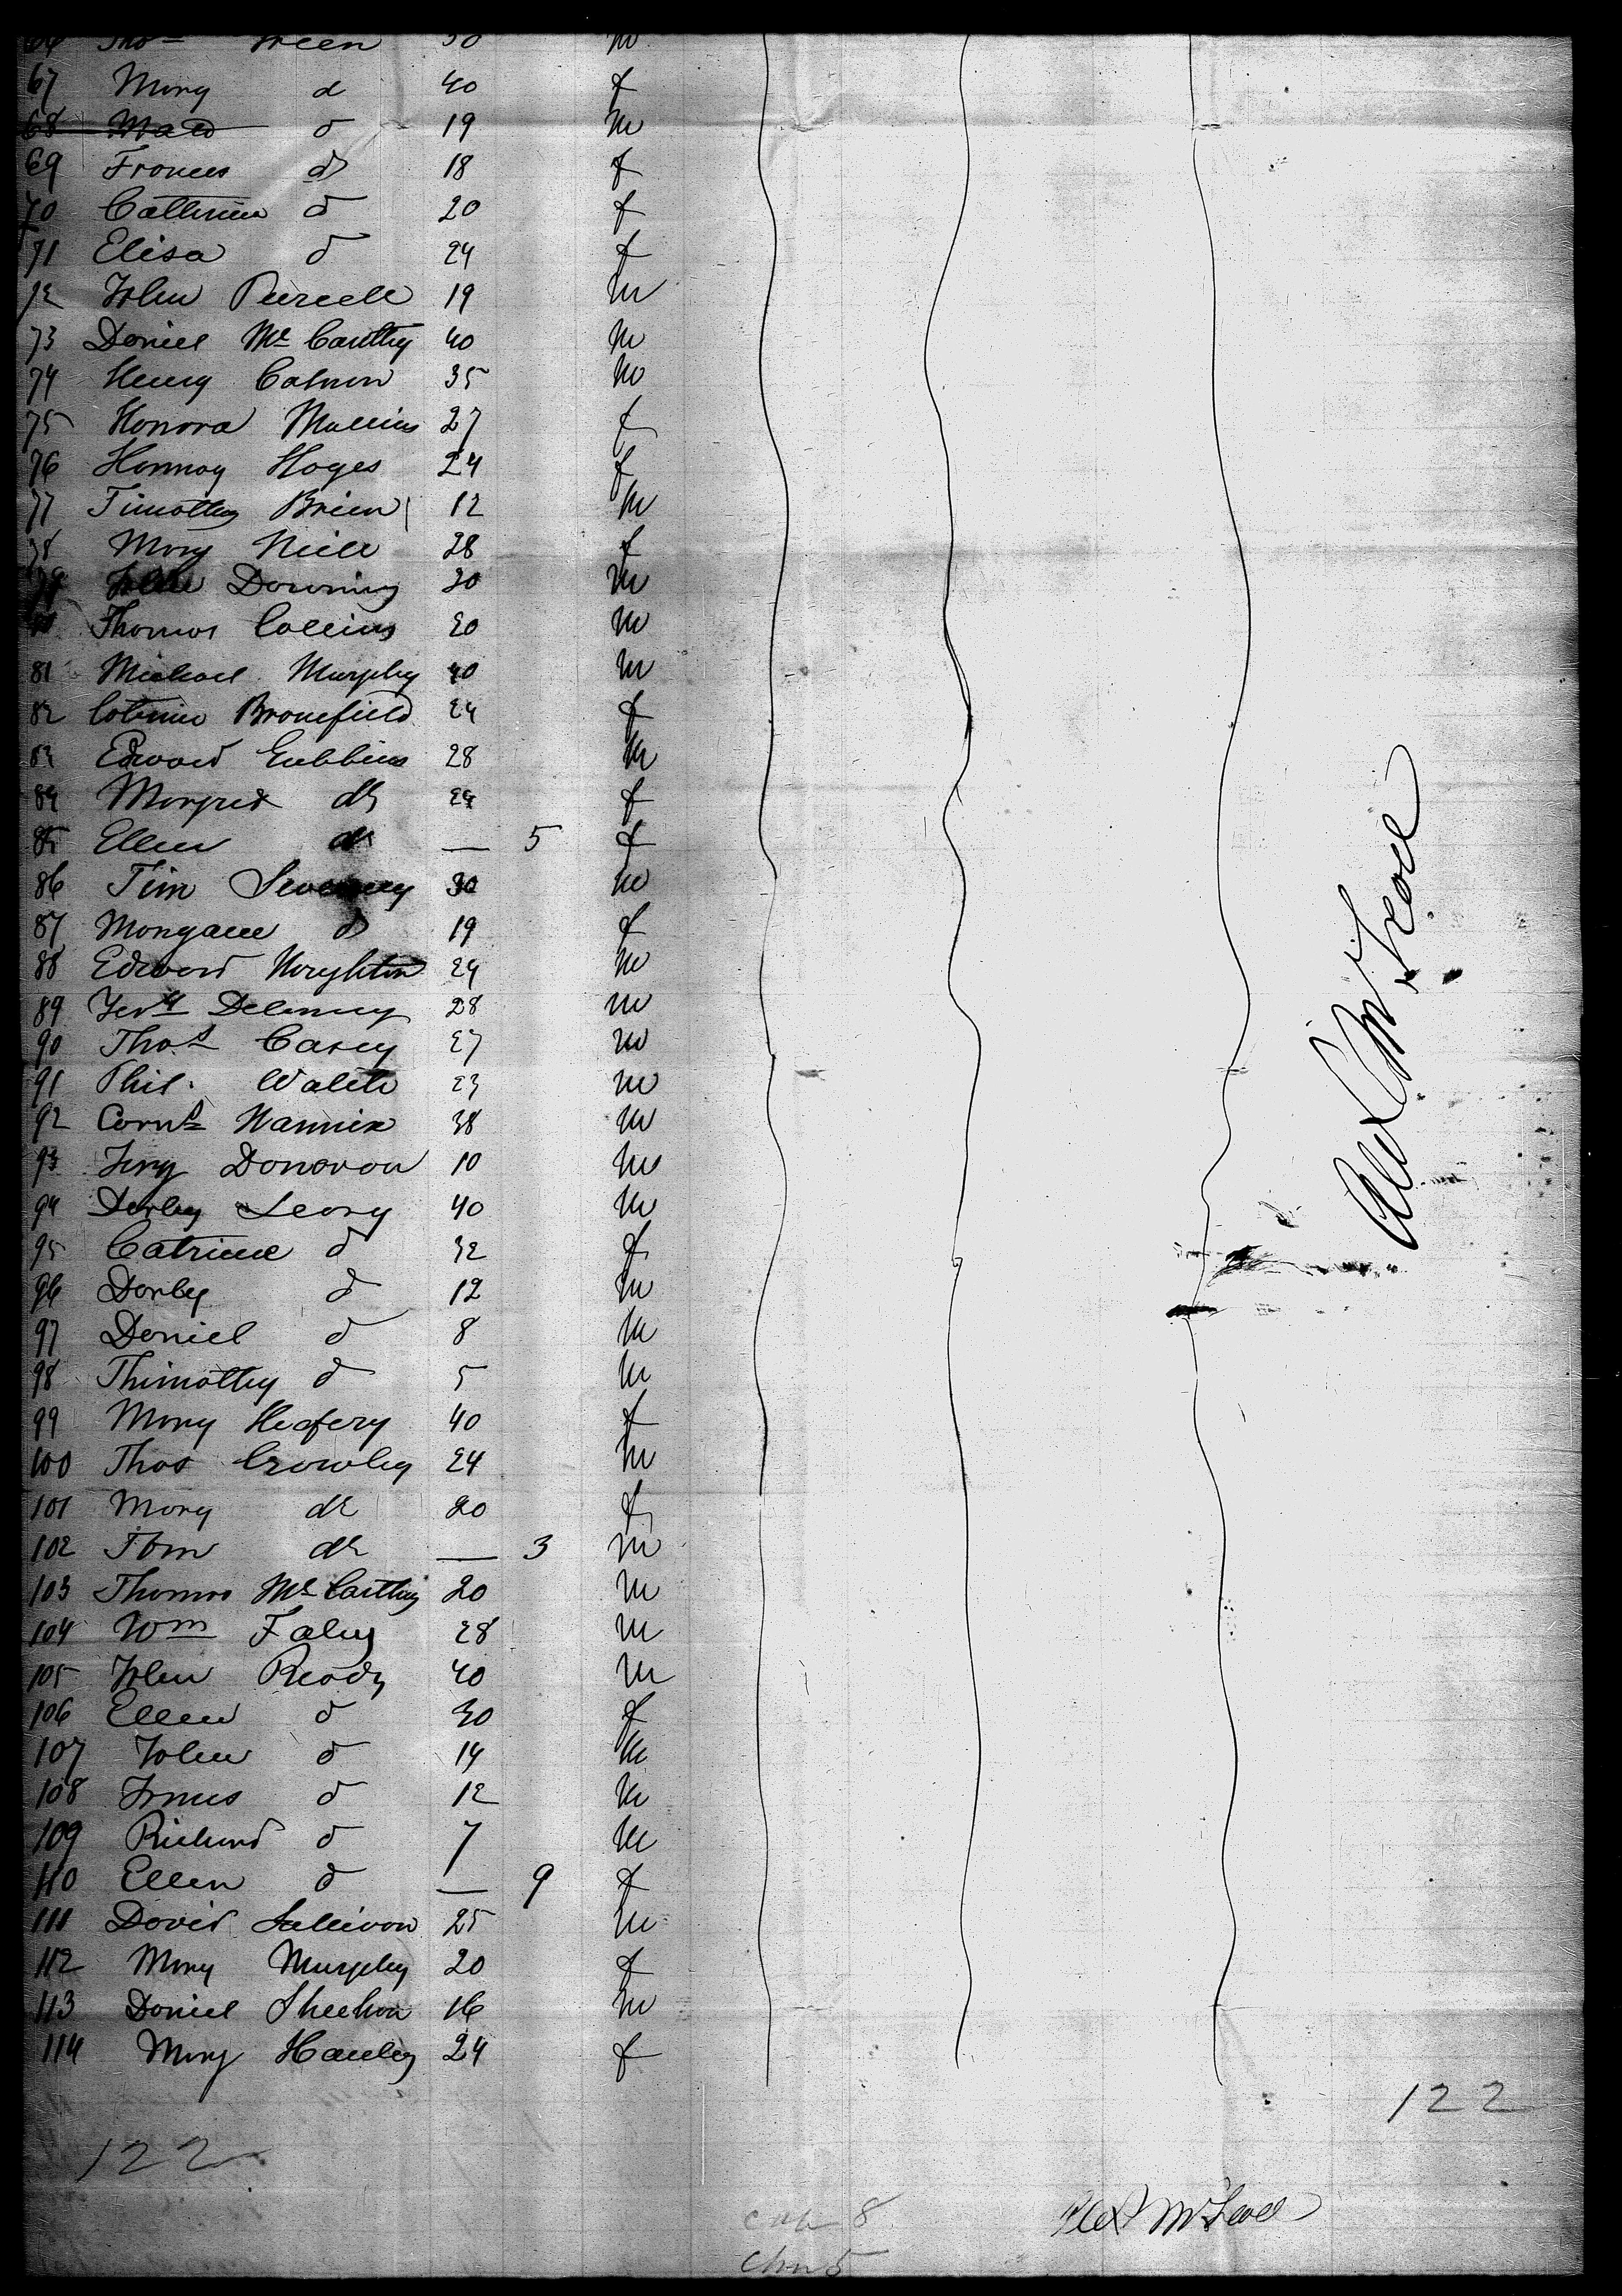 66 Thos Green 50 m
67 Mary d 40 f
68 d 19 m
69 Frances do 18 f
70 Catherine d 20 f
71 Elisa d 24 f
72 John Purcell 19 m
73 Daniel Mc Carthy 40 m
74 Henry 35 m
75 Honora Mullins 27 f
76 Hannay Hayes 24 f
77 Timothy Brien 12 m
78 Mary Niell 28 f
79 John Downing 30 m
80 Thomas Collins 20 m
81 Michael Murphy 40 m
82 Catrine Bromefield 24 f
83 Edward Gubbins 28 m
84 Margret do 24 f
85 Ellen do — 5 f
86 Tim Sweeney 30 m
87 do 19 f
88 Edward 24 m
89 Delaney 28 m
90 Thos Casey 27 m
91 Phil. Walsh 23 m
92 Corns Hannix 38 m
93 Jerry Donovan 10 m
94 Darby Leary 40 m
95 Catrine d 32 f
96 Darby d 12 m
97 Daniel d 8 m
98 Thimothy d 5 m
99 Mary 40 f
100 Thos Crowley 24 m
101 Mary do 20 f
102 Tom do — 3 m
103 Thomas Mc Carthy 20 m
104 Wm Faley 28 m
105 John Ready 40 m
106 Ellen d 30 f
107 John d 14 m
108 James d 12 m
109 Richard d 7 m
110 Ellen d — 9 f
111 David Sullivan 25 m
112 Mary Murphy 20 f
113 Daniel Sheehan 16 m
114 Mary Hanley 24 f
Alex McLeod
122
122
8
Alex McLeod
chn 5